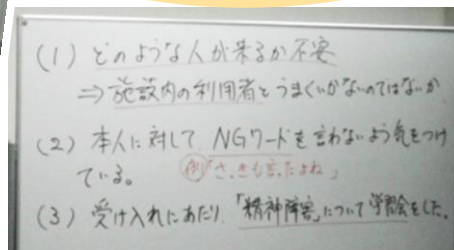 (1) どのような人が来るか不安
⇒施設内の利用者とうまくいかないのではないか
(2) 本人に対して、NGワードを言わないよう気をつけ
ている。
例「さっきも言ったよね」
(3) 受け入れにあたり、「精神障害」について学習会をした。